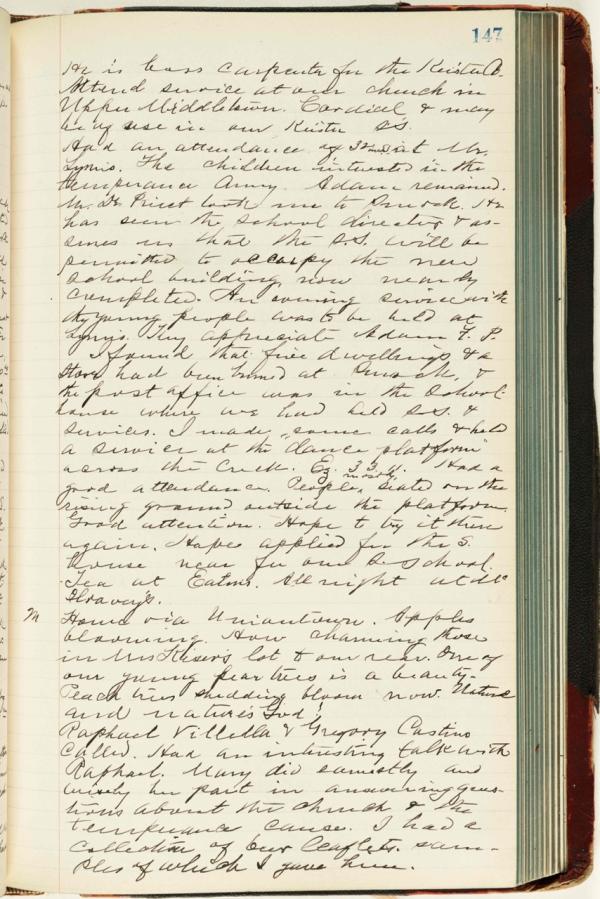 147
He is boss carpenter for the Keister Co.
Attend service at our church in
Upper Middletown. Cordial & may
be of use in our Keister SS.
Had an attendance of 32 at Mr.
Lynns. The children interested in the
temperance Army. Adam remained.
Mr. De Priest took me to Smock. He
has seen the school director & as-
sures us that the S.S. will be
permitted to occupy the new
school building now nearly
completed. An evening service with
the young people was to be held at
Lynn's. They appreciate Adam F. P.
I found that five dwellings & a
store had been burned at Smock, &
the post office was in the School-
house where we had held S.S. &
services. I made some calls & held
a service at the "dance platform"
across the Creek. Ez. 33.11. Had a
good attendance. People mostly seated on the
rising ground outside the platform.
Good attention. Hope to try it there
again. Have applied for the S.
House near for our S. School.
Tea at Eatons. All night at Mc
M Home via Uniontown. Apples
blooming. How charming those
in Mrs Keiser's lot to our rear. One of
our young pear trees is a beauty.
Peach trees shedding bloom now. Nature
and nature's God!
Raphael Villella & Gregory Castino
called. Had an interesting talk with
Raphael. Mary did earnestly and
wisely her part in answering ques-
tions about the church & the
temperance cause. I had a
collection of our leaflets. sam-
ples of which I gave him.